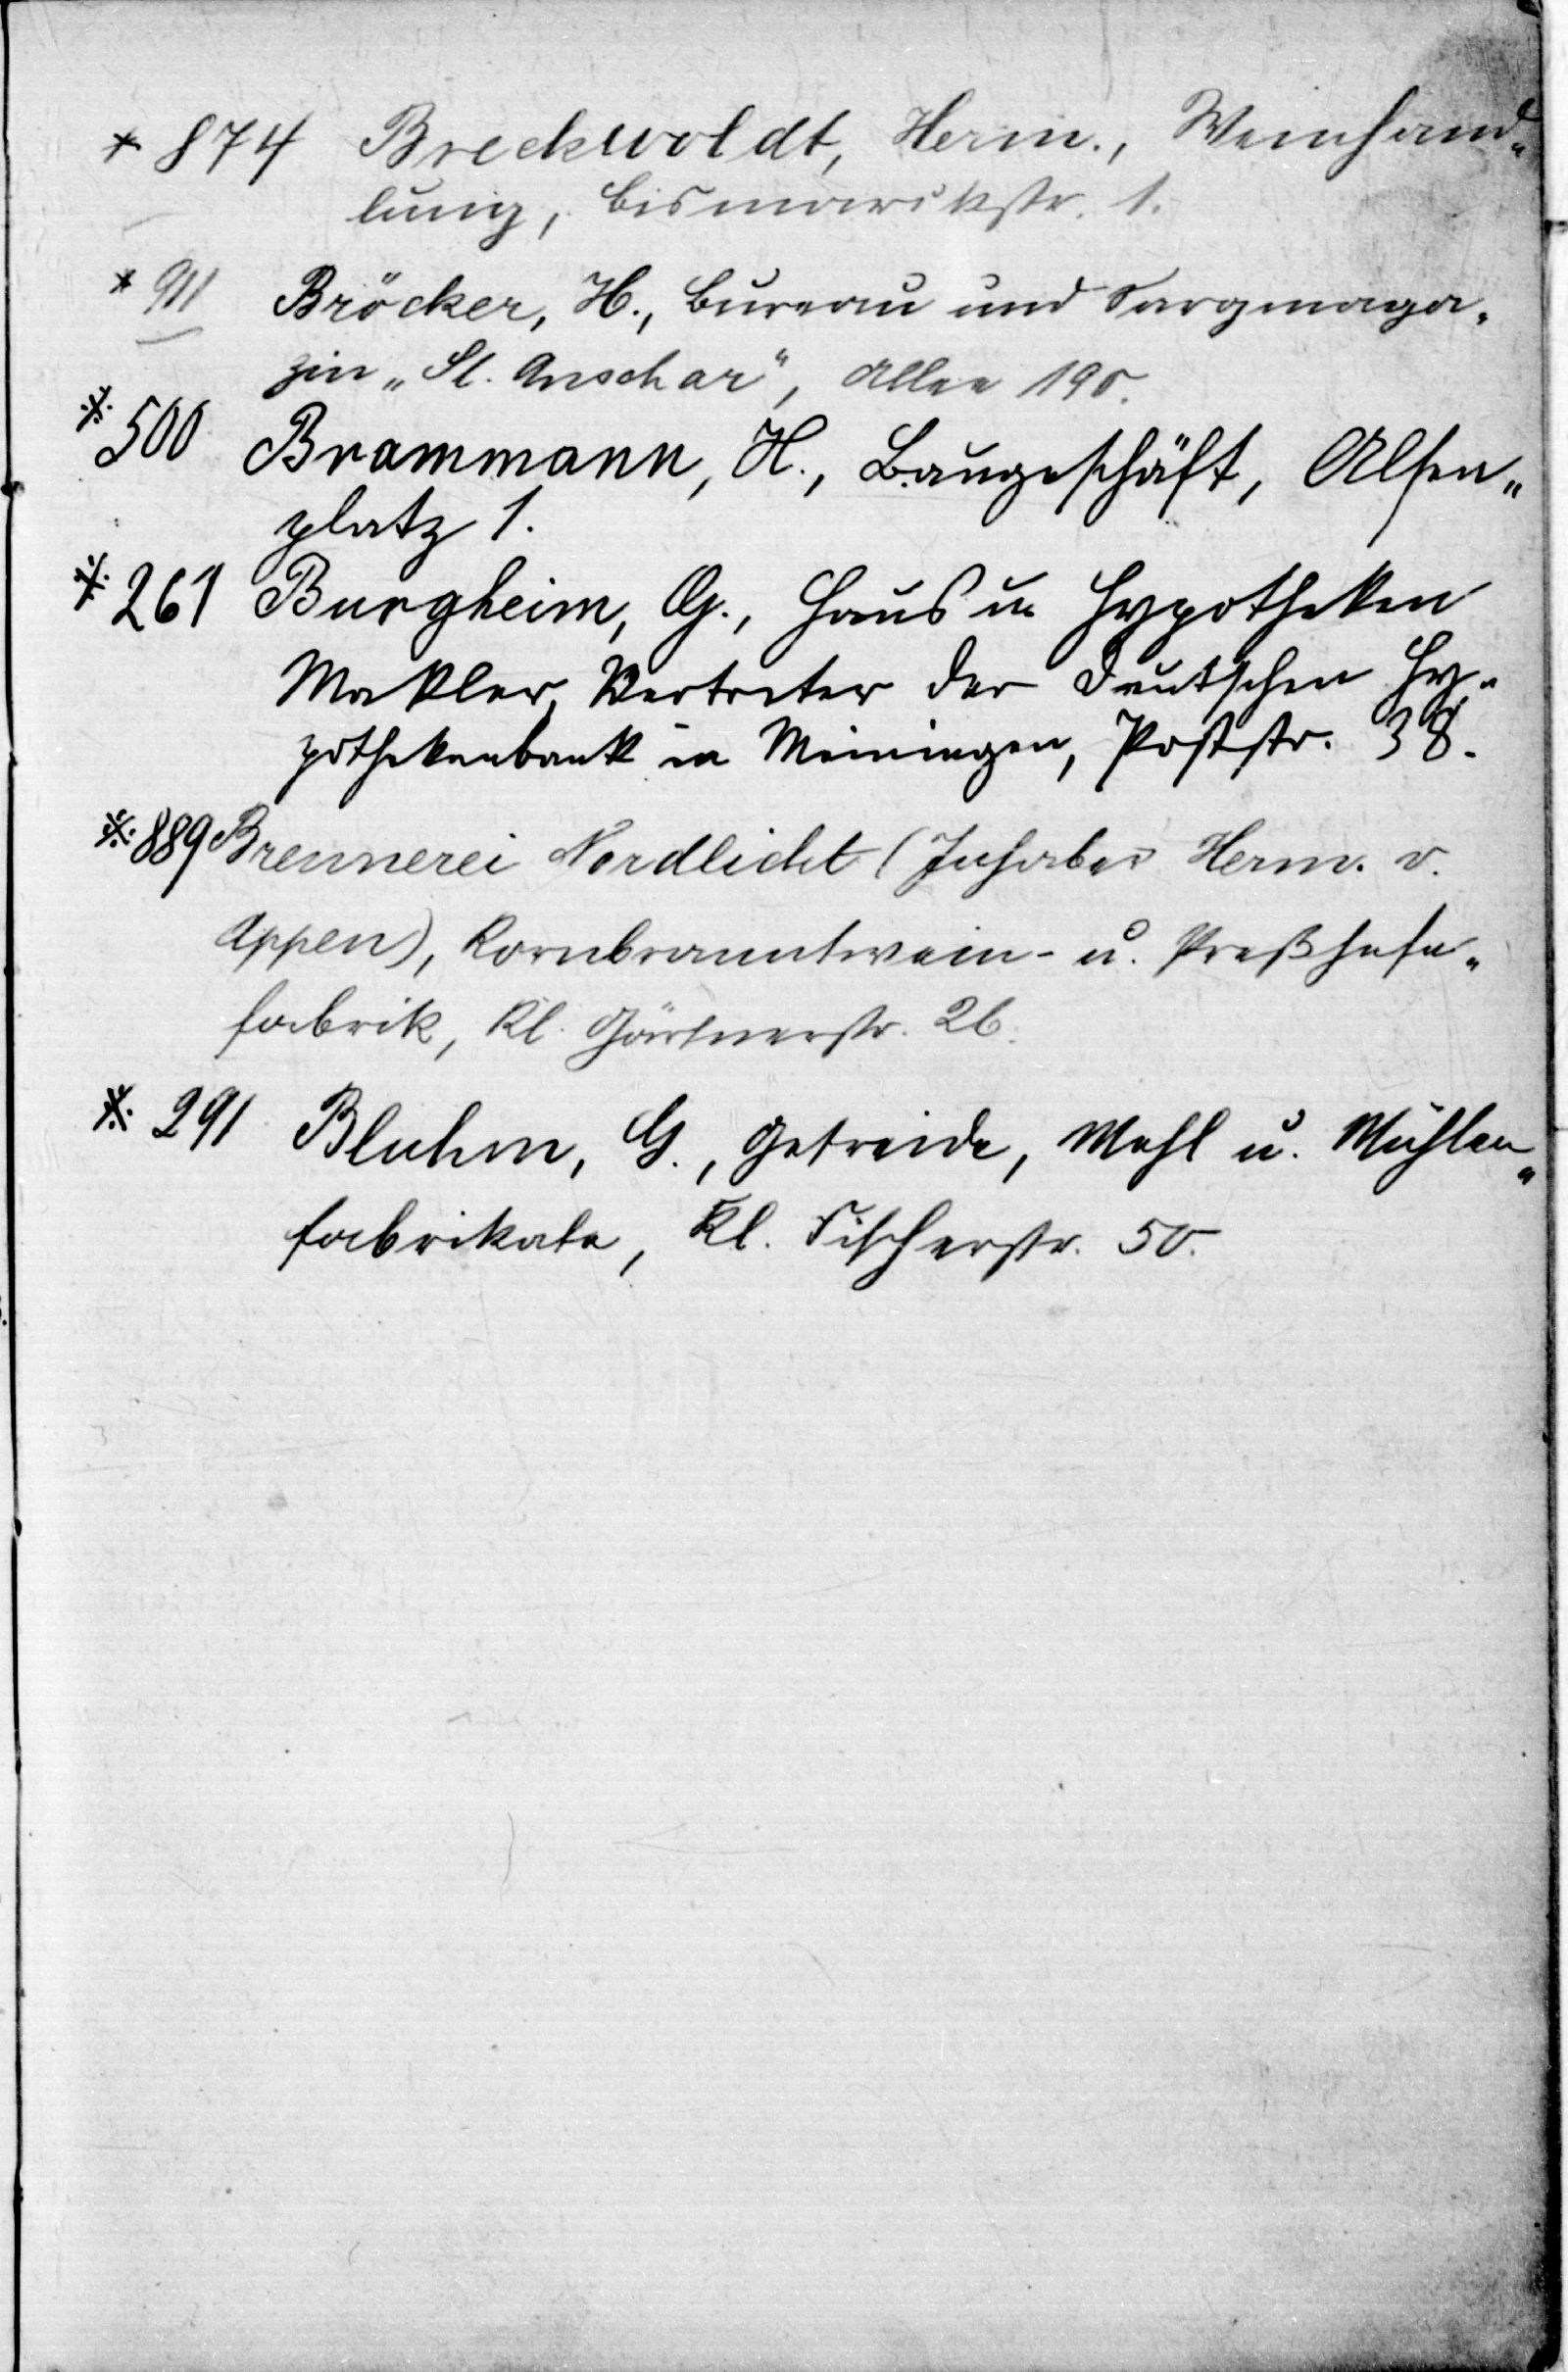 * 874 Breckwoldt, Herm., Weinhand„
lung, Bismarckstr. 1.
* 911 Bröcker, H., Bureau und Sargmaga„
zin „St. Anschar“, Allee 190.
* 500 Brammann, H., Baugeschäft, Alsen„
platz 1.
* 261 Burgheim, G., Haus u Hypotheken
Makler, Vertreter der Deutschen Hy„
pothekenbank in Meiningen, Poststr. 38.
* 889 Brennerei Nordlicht (Inhaber Herm. v.
Appen), Kornbranntwein- u. Preßhefe„
fabrik, Kl. Gärtnerstr. 26.
* 291 Bluhm, G., Getreide, Mehl u. Mühlen„
fabrikate, Kl. Fischerstr. 50.